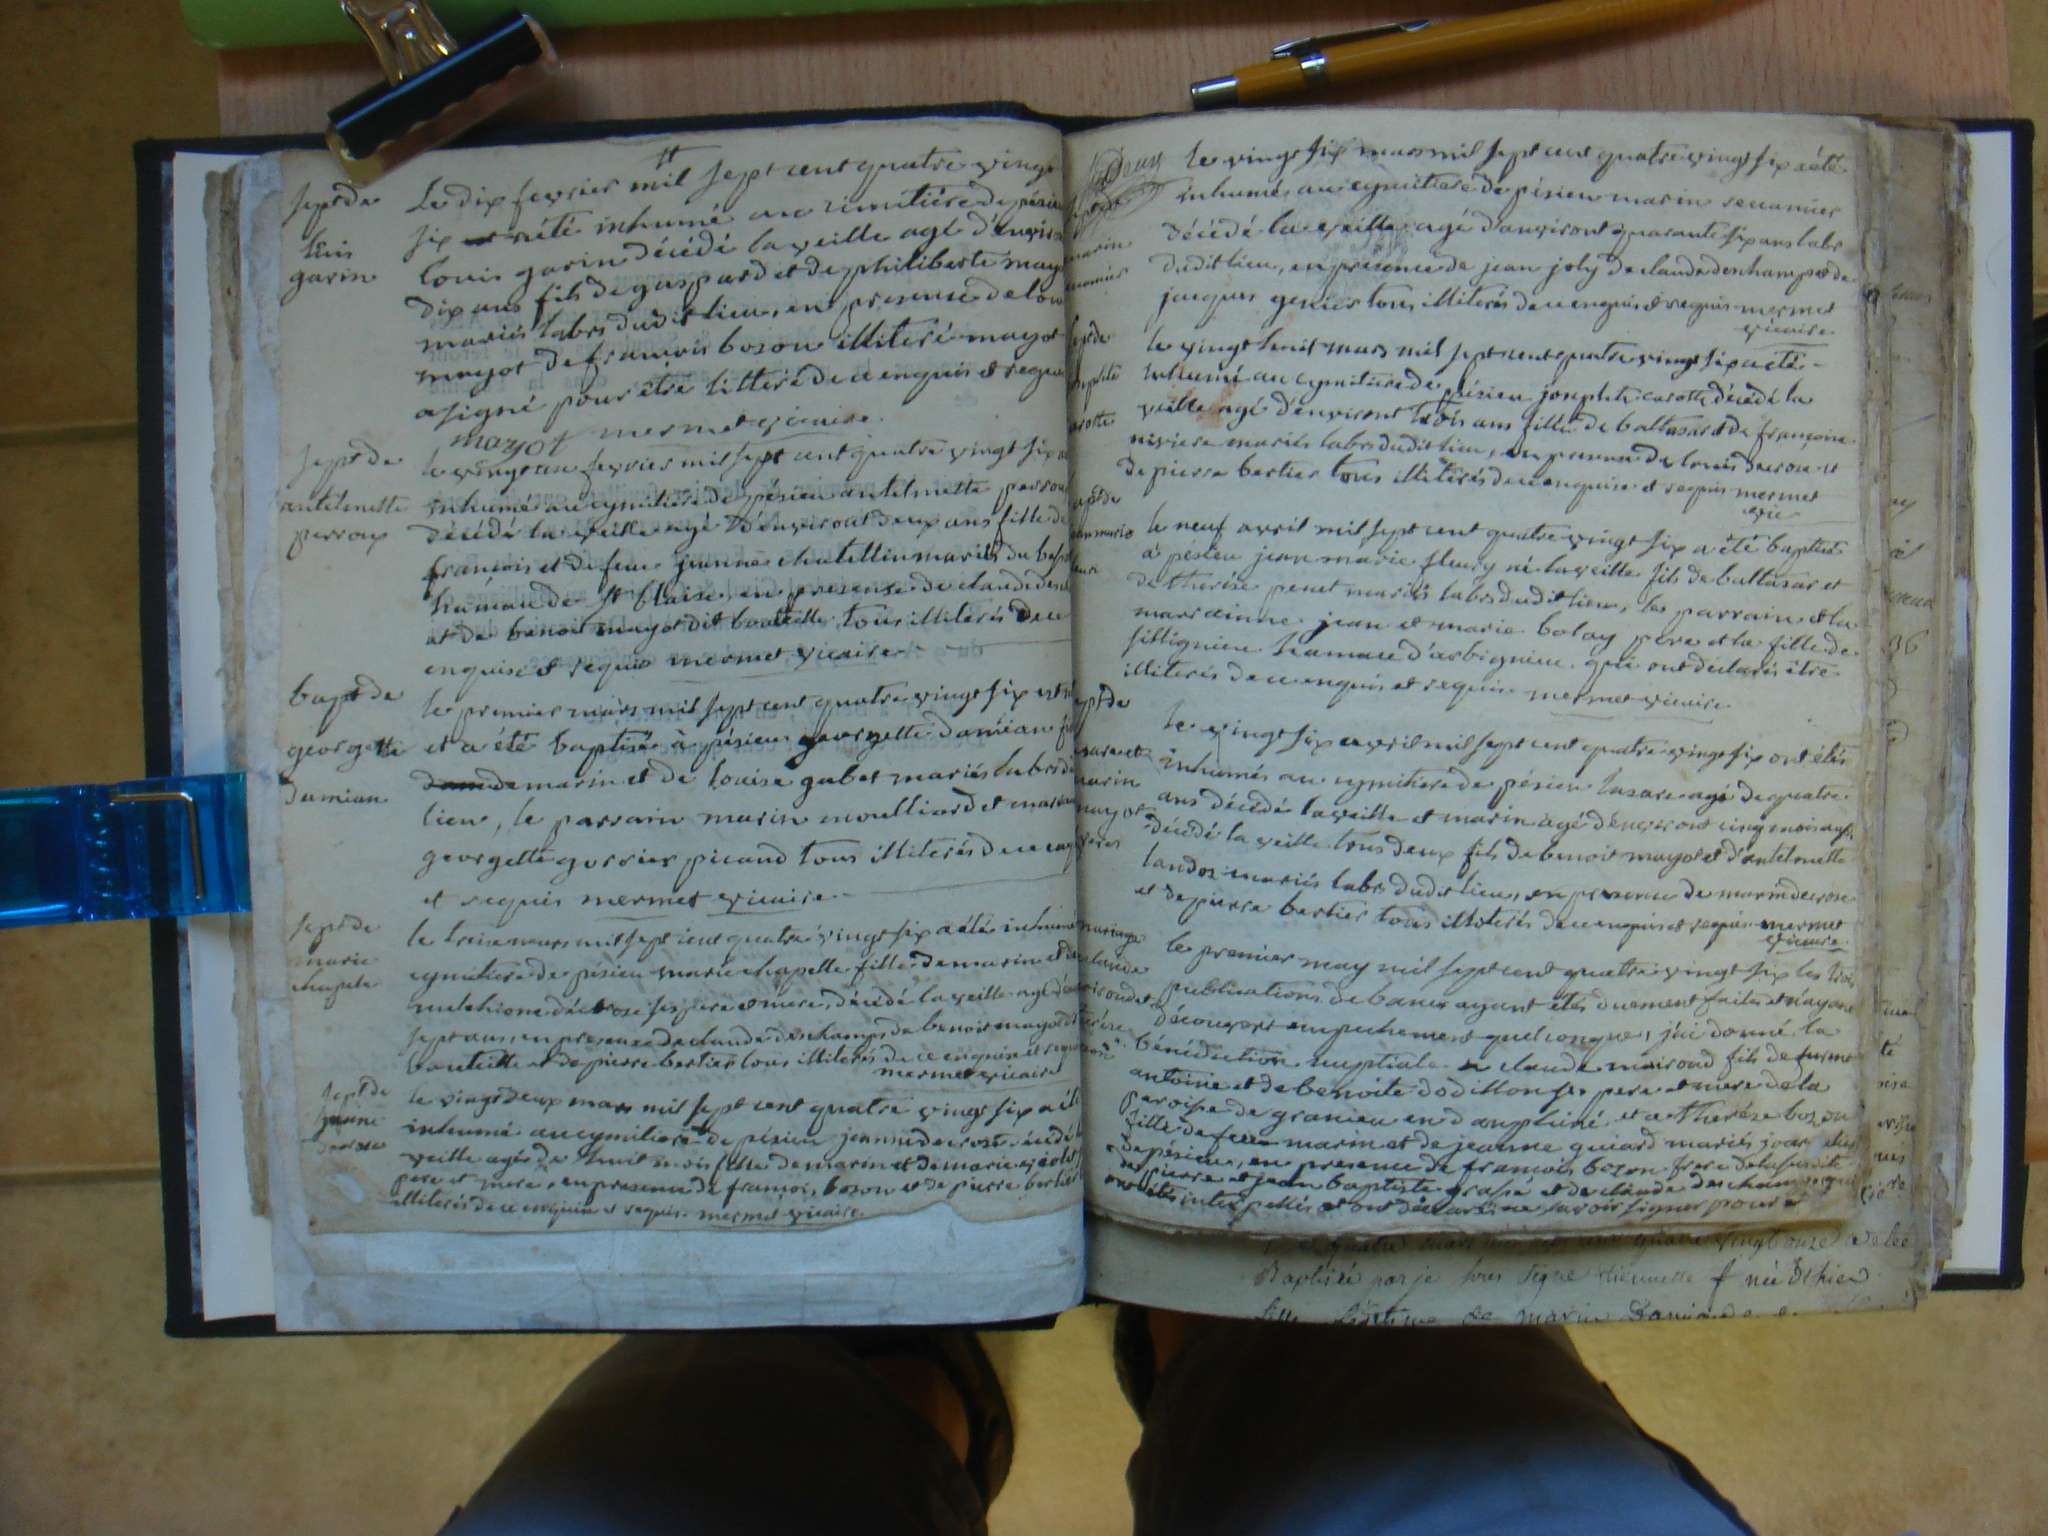 sept de
Louis
garin
Le dix fevrier mil sept cent quatre vingt
six a été inhumé au cimitiére de pésieu
Louis garin décédé la veille agé d'environ
dix ans fils de gaspard et de philiberte mayot
mariés labrs dudit lieu, en presence de louis
mayot de francois bozon illiteré mayot
a signé pour être litteré de ce enquis et requis
mayot mermet vicaire.
sept de
antelmette
perroux
le vingt un fevrier mil sept cent quatre vingt six a
inhumé au cymitiere de pésieu antelmette perroux
décédé la veille agé d'environt deux ans fille de
francois et de feue jeanne chatillin mariés du
hámau de st blaise, en presense de claude
et de benoit mayot dit bouteille tous illiterés de ce
enquis et requis mermet vicaire
bapt de
georgette
damian
le premier mars mil sept cent quatre vingt six est
et a été baptisée à pésieu georgette damian
de marin et de louise gubet mariés labrs du
lieu, le parrain marin moulliard et
georgette gorrier picaud tous illiterés de ce
et requis mermet vicaire.
sept de
marie
chapele
le treise mars mil sept cent quatre vingt six a été inhumé
cymitiere de pésieu marie chapelle fille de marin et de
melchione décrose ses pere et mere, décédé la veille agé
sept ans, en presense de claude deschamps de benoit mayot dit
bouteille et de pierre bertier tous illiterés de ce enquis et requis
mermet vicaire
sept de
janine
decrose
le vingt deux mars mil sept cent quatre vingt six a été
inhumé au cymitiere de pésieu jeannine decrose décédé
veille agée de huit mois fille de marin et de marie
pere et mere, en presense de francois bozon et de pierre bertier
illiterés de ce enquis et requis. mermet vicaire.
Deux
sept de
marin
le vingt six mars mil sept cent quatre vingt six a été
inhumé au cymitiere de pésieu marin
décédé la veille agé d'environt quarante six ans labr
dudit lieu, en presence de jean joly de claude deschamps et de
jacques genier tous illiterés de ce enquis et requis mermet
vicaire
sept de
josephte
carotte
le vingt huit mars mil sept cent quatre vingt six a été
inhumé au cymitiere de pésieu josephte carotte décédé la
veille agé d'environt trois ans fille de baltasar et de francoise
riviere mariés labrs dudit lieu, en presence de louis decrose et
de pierre bertier tous illiterés de ce enquis et requis mermet
vic
bapt de
jean marie
fleury
le neuf avril mil sept cent quatre vingt six a été baptisé
à pésieu jean marie fleury né la veille fils de baltasar et
de therése penet mariés labrs dudit lieu, les parrain et la
marrainne jean et marie bolay pere et la fille de
sillignieu hamau d'arbignieu qui ont déclarés être
illiterés de ce enquis et requis mermet vicaire
sept de
lazare et
marin
mayot
freres
le vingt six avril mil sept cent quatre vingt six ont étés
inhumés au cymitiere de pésieu lazare agé de quatre
ans décédé la veille et marin agé d'environt cinq mois aussi
décédé la veille tous deux fils de benoit mayot et d'antelmette
landoz mariés labrs dudit lieu, en presence de marin decrose
et de pierre bertier tous illiterés de ce enquis et requis mermet
vicaire
mariage
claude
le premier may mil sept cent quatre vingt six les trois
publications de bancs ayant étés duement faites et n'ayant
découvert empechement quelconque, j'ai donné la
bénédiction nuptiale a claude moiroud fils de
antoine et de benoite dodillon ses pere et mere de la
paroisse de granieu en dauphiné et a therése bozon
fille de feu marin et de jeanne guiard mariés
de pésieu, en presence de francois bozon frere de la susdite
de pierre et jean baptiste et de claude deschamps qui
ont étés interpellés et ont déclarés ne savoir signer pour
quatre vingt onze a été
Baptisée par je sous signé née d'hier
fille légitime de marin